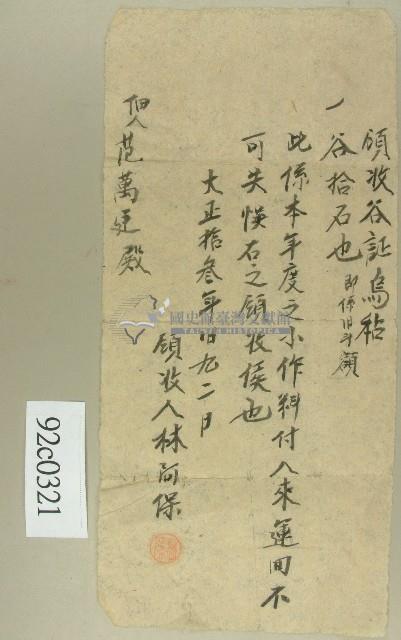 領收谷証為粘
一谷拾石也 即係旧斗
此係本年度之小作料付人來運回不
可失悞右之領收候也
大正拾叁年旧九二日
領收人林阿保
佃人范萬 殿
國史館臺灣文獻館
TAIWAN HISTORICA
92c0321